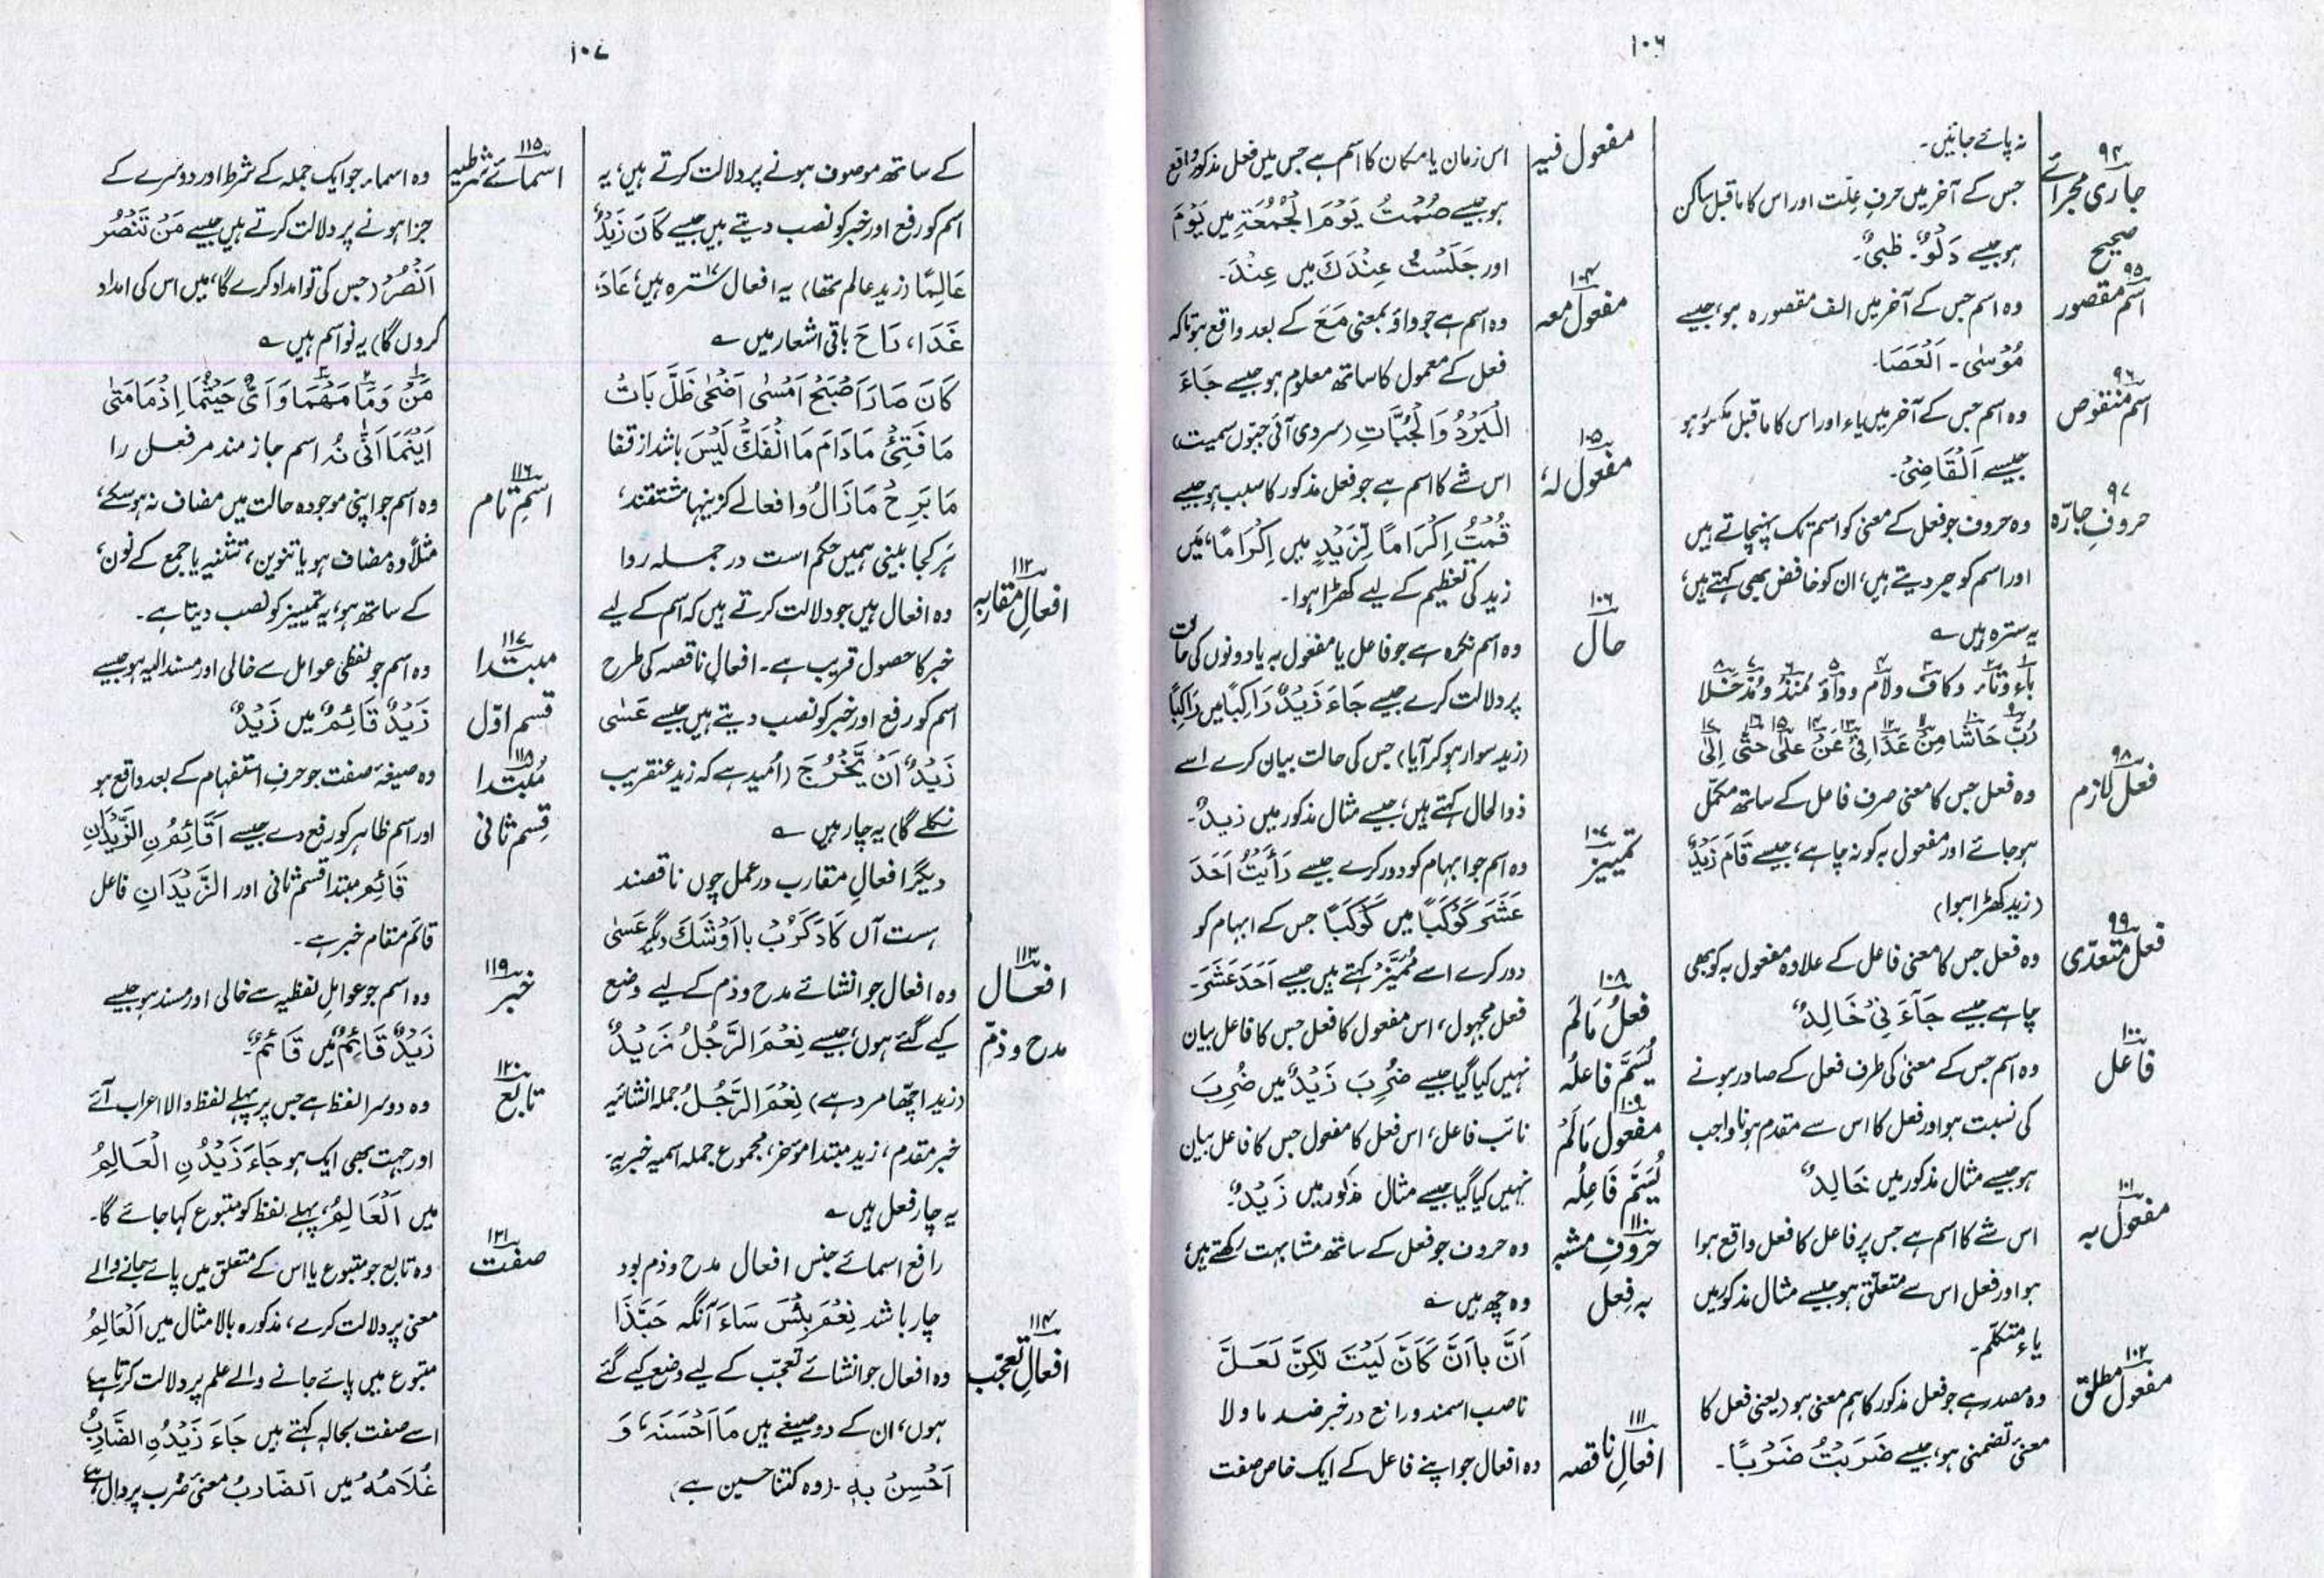 ۱۰۶
۹۴
جاری مجرائے
صحیح
نہ پائے جائیں۔
جس کے آخر میں حرفِ علت اور اس کا ماقبل ساکن
ہو جیسے دَلْوٌ۔ ظَبْیٌ۔
۹۵
اسم مقصور
وہ اسم جس کے آخر میں الف مقصورہ ہو، جیسے
مُوْسٰی۔ اَلْعَصَا۔
۹۶
اسم منقوص
وہ اسم جس کے آخر میں یاء اور اس کا ماقبل مکسور ہو
جیسے اَلْقَاضِیْ۔
۹۷
حروفِ جارّہ
وہ حروف جو فعل کے معنی کو اسم تک پہنچاتے ہیں
اور اسم کو جر دیتے ہیں، ان کو خافض بھی کہتے ہیں،
یہ سترہ ہیں ؎
باء و تاء و کاف و لام و واؤ مُنْذُ و مُذْ خَلَا
رُبَّ حَاشَا مِنْ عَدَا فِیْ عَنْ عَلٰی حَتّٰی اِلٰی
۹۸
فعل لازم
وہ فعل جس کا معنی صرف فاعل کے ساتھ مکمل
ہو جائے اور مفعول بہ کو نہ چاہے، جیسے قَامَ زَیْدٌ
(زید کھڑا ہوا)
۹۹
فعل متعدّی
وہ فعل جس کا معنی فاعل کے علاوہ مفعول بہ کو بھی
چاہے جیسے جَآءَ نِیْ خَالِدٌ
۱۰۰
فاعل
وہ اسم جس کے معنی کی طرف فعل کے صادر ہونے
کی نسبت ہو اور فعل کا اس سے مقدم ہونا واجب
ہو جیسے مثال مذکور میں خَالِدٌ
۱۰۱
مفعول بہ
اس شے کا اسم ہے جس پر فاعل کا فعل واقع ہوا
ہو اور فعل اس سے متعلق ہو جیسے مثال مذکور میں
یاءِ متکلم۔
۱۰۲
مفعول مطلق
وہ مصدر ہے جو فعل مذکور کا ہم معنی ہو (یعنی فعل کا
معنیٰ تضمنی ہو، جیسے ضَرَبْتُ ضَرْبًا۔
مفعول فیہ
اس زمان یا مکان کا اسم ہے جس میں فعل مذکور واقع
ہو جیسے صُمْتُ یَوْمَ الْجُمُعَۃِ میں یَوْمَ
اور جَلَسْتُ عِنْدَكَ میں عِنْدَ۔
۱۰۴
مفعول معہ
وہ اسم ہے جو واؤ بمعنی مَعَ کے بعد واقع ہو تاکہ
فعل کے معمول کا ساتھ معلوم ہو جیسے جَاءَ
الْبَرْدُ وَالْجُبَّاتِ (سردی آئی جبّوں سمیت)
۱۰۵
مفعول لہٗ
اس شے کا اسم ہے جو فعل مذکور کا سبب ہو جیسے
قُمْتُ اِکْرَامًا لِّزَیْدٍ میں اِکْرَامًا، میں
زید کی تعظیم کے لیے کھڑا ہوا۔
۱۰۶
حال
وہ اسم نکرہ ہے جو فاعل یا مفعول بہ یا دونوں کی حالت
پر دلالت کرے جیسے جَاءَ زَیْدٌ رَاکِبًا میں رَاکِبًا
(زید سوار ہو کر آیا) جس کی حالت بیان کرے اسے
ذوالحال کہتے ہیں، جیسے مثال مذکور میں زیدٌ۔
۱۰۷
تمییز
وہ اسم جو ابہام کو دور کرے جیسے رَأَیْتُ اَحَدَ
عَشَرَ کَوْکَبًا میں کَوْکَبًا جس کے ابہام کو
دور کرے اسے مُمَیَّزْ کہتے ہیں جیسے اَحَدَ عَشَرَ۔
۱۰۸
فعلُ مَالَمْ
یُسَمَّ فاعلُہ
فعل مجہول، اس مفعول کا فعل جس کا فاعل بیان
نہیں کیا گیا جیسے ضُرِبَ زَیْدٌ میں ضُرِبَ
۱۰۹
مفعول مَالَمْ
یُسَمَّ فَاعِلُہ
نائب فاعل، اس فعل کا مفعول جس کا فاعل بیان
نہیں کیا گیا جیسے مثال مذکور میں زَیْدٌ۔
۱۱۰
حروفِ مشبہ
بہ فِعل
وہ حروف جو فعل کے ساتھ مشابہت رکھتے ہیں،
وہ چھ ہیں ؎
اَنَّ با اَنَّ کَاَنَّ لَیْتَ لٰکِنَّ لَعَلَّ
ناصب اسمند و رافع در خبر ضد ما و لا
۱۱۱
افعالِ ناقصہ
وہ افعال جو اپنے فاعل کے ایک خاص صفت
۱۰۷
کے ساتھ موصوف ہونے پر دلالت کرتے ہیں، یہ
اسم کو رفع اور خبر کو نصب دیتے ہیں جیسے کَانَ زَیْدٌ
عَالِمًا (زید عالم تھا) یہ افعال سترہ ۱۷ ہیں، عَادَ،
غَدَا، رَاحَ باقی اشعار میں ؎
کَانَ صَارَ اَصْبَحَ اَمْسٰی اَضْحٰی ظَلَّ بَاتَ
مَا فَتِیَٔ مَادَامَ مَا انْفَكَّ لَیْسَ باشد از قفا
مَا بَرِحَ مَا زَالَ و افعالے کزینہا مشتقند،
ہر کجا بینی ہمیں حکم است در جملہ روا
۱۱۲
افعالِ مقاربہ
وہ افعال ہیں جو دلالت کرتے ہیں کہ اسم کے لیے
خبر کا حصول قریب ہے۔ افعالِ ناقصہ کی طرح
اسم کو رفع اور خبر کو نصب دیتے ہیں جیسے عَسٰی
زَیْدٌ اَنْ یَّخْرُجَ (اُمید ہے کہ زید عنقریب
نکلے گا) یہ چار ہیں ؎
دیگر افعالِ مقارب در عمل چوں ناقصند
ہست آں کَادَ کَرُبَ با اَوْشَكَ دگر عَسٰی
۱۱۳
افعال
مدح و ذمّ
وہ افعال جو انشائے مدح و ذم کے لیے وضع
کیے گئے ہوں، جیسے نِعْمَ الرَّجُلُ زَیْدٌ
(زید اچھا مرد ہے) نِعْمَ الرَّجُلُ جملہ انشائیہ
خبر مقدم، زید مبتدا مؤخر، مجموع جملہ اسمیہ خبریہ۔
یہ چار فعل ہیں ؎
رافع اسمائے جنس افعال مدح و ذم بود
چار باشد نِعْمَ بِئْسَ سَاءَ آنگہ حَبَّذَا
۱۱۴
افعالِ تعجّب
وہ افعال جو انشائے تعجّب کے لیے وضع کیے گئے
ہوں، ان کے دو صیغے ہیں مَا اَحْسَنَہٗ، وَ
اَحْسِنْ بِہٖ۔ (وہ کتنا حسین ہے)
۱۱۵
اسمائے شرطیہ
وہ اسماء جو ایک جملہ کے شرط اور دوسرے کے
جزا ہونے پر دلالت کرتے ہیں جیسے مَنْ تَنْصُرْ
اَنْصُرْ (جس کی تو امداد کرے گا، میں اس کی امداد
کروں گا) یہ نو اسم ہیں ؎
مَنْ وَمَا مَھْمَا وَاَیٌّ حَیْثُمَا اِذْمَا مَتٰی
اَیْنَمَا اَنّٰی نُہ اسم جازمند مر فعل را
۱۱۶
اسمِ تام
وہ اسم جو اپنی موجودہ حالت میں مضاف نہ ہو سکے،
مثلاً وہ مضاف ہو یا تنوین، تثنیہ یا جمع کے نون،
کے ساتھ ہو، یہ تمییز کو نصب دیتا ہے۔
۱۱۷
مبتدا
قسم اوّل
وہ اسم جو لفظی عوامل سے خالی اور مسند الیہ ہو جیسے
زَیْدٌ قَائِمٌ میں زَیْدٌ
۱۱۸
مُبتدا
قِسم ثانی
وہ صیغہ صفت جو حرفِ استفہام کے بعد واقع ہو
اور اسم ظاہر کو رفع دے جیسے اَقَائِمُنِ الزَّیْدَانِ
قَائِم مبتدا قسم ثانی اور الزَّیْدَانِ فاعل
قائم مقام خبر ہے۔
۱۱۹
خبر
وہ اسم جو عواملِ لفظیہ سے خالی اور مسند ہو جیسے
زَیْدٌ قَائِمٌ میں قَائِمٌ۔
۱۲۰
تابع
وہ دوسرا لفظ ہے جس پر پہلے لفظ والا اعراب آئے
اور جہت بھی ایک ہو جَاءَ زَیْدُنِ الْعَالِمُ
میں اَلْعَالِمُ، پہلے لفظ کو متبوع کہا جائے گا۔
۱۲۱
صفت
وہ تابع جو متبوع یا اس کے متعلق میں پائے جانے والے
معنی پر دلالت کرے، مذکورہ بالا مثال میں اَلْعَالِمُ
متبوع میں پائے جانے والے علم پر دلالت کرتا ہے،
اسے صفت بحالہ کہتے ہیں جَاءَ زَیْدُنِ الضَّارِبُ
غُلَامُہٗ میں اَلضَّارِبُ معنیٰ ضَرْب پر دال ہے